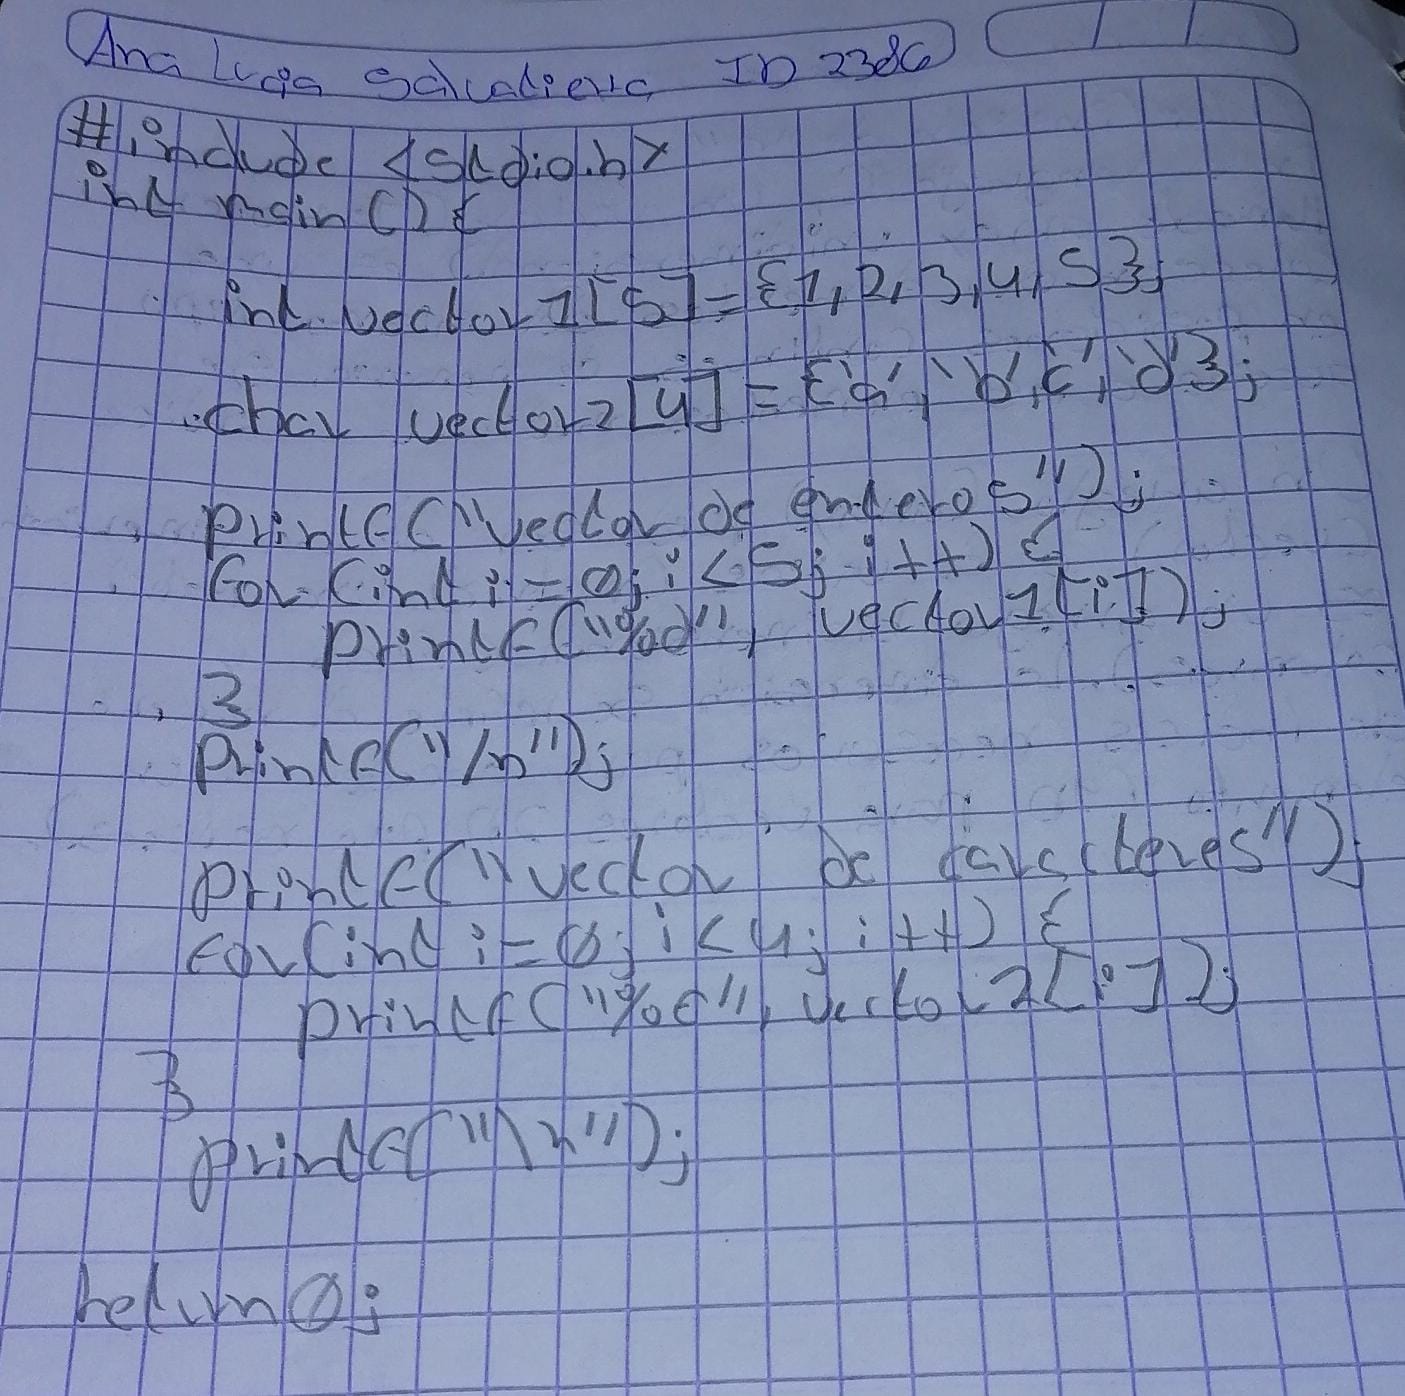 Ana Lucia Salvatierra ID 2386
#include <stdio.h>
int main () {
int vector 1[5] = {1, 2, 3, 4, 5};
char vector 2[4] = {'a', 'b', c', 'd'};
printf ("Vector de enteros");
for (int i = 0; i < 5; i++) {
printf ("%d", vector 1[i]);
}
printf ("/n");
printf ("vector de caracteres");
for (int i = 0; i < 4; i++) {
printf ("%c", vector 2[i]);
}
printf ("\n");
return 0;